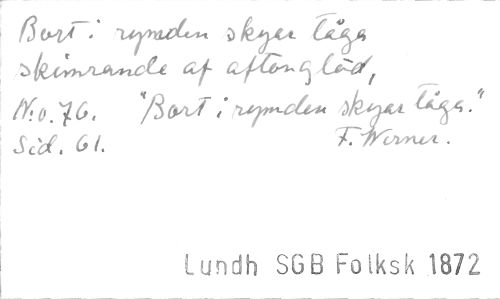 Bort i rymden skyar tåga
skimrande af aftonglöd,
N:o. 76. "Bort i rymden skyar tåga."
Sid. 61. F. Werner.
Lundh SGB Folksk 1872